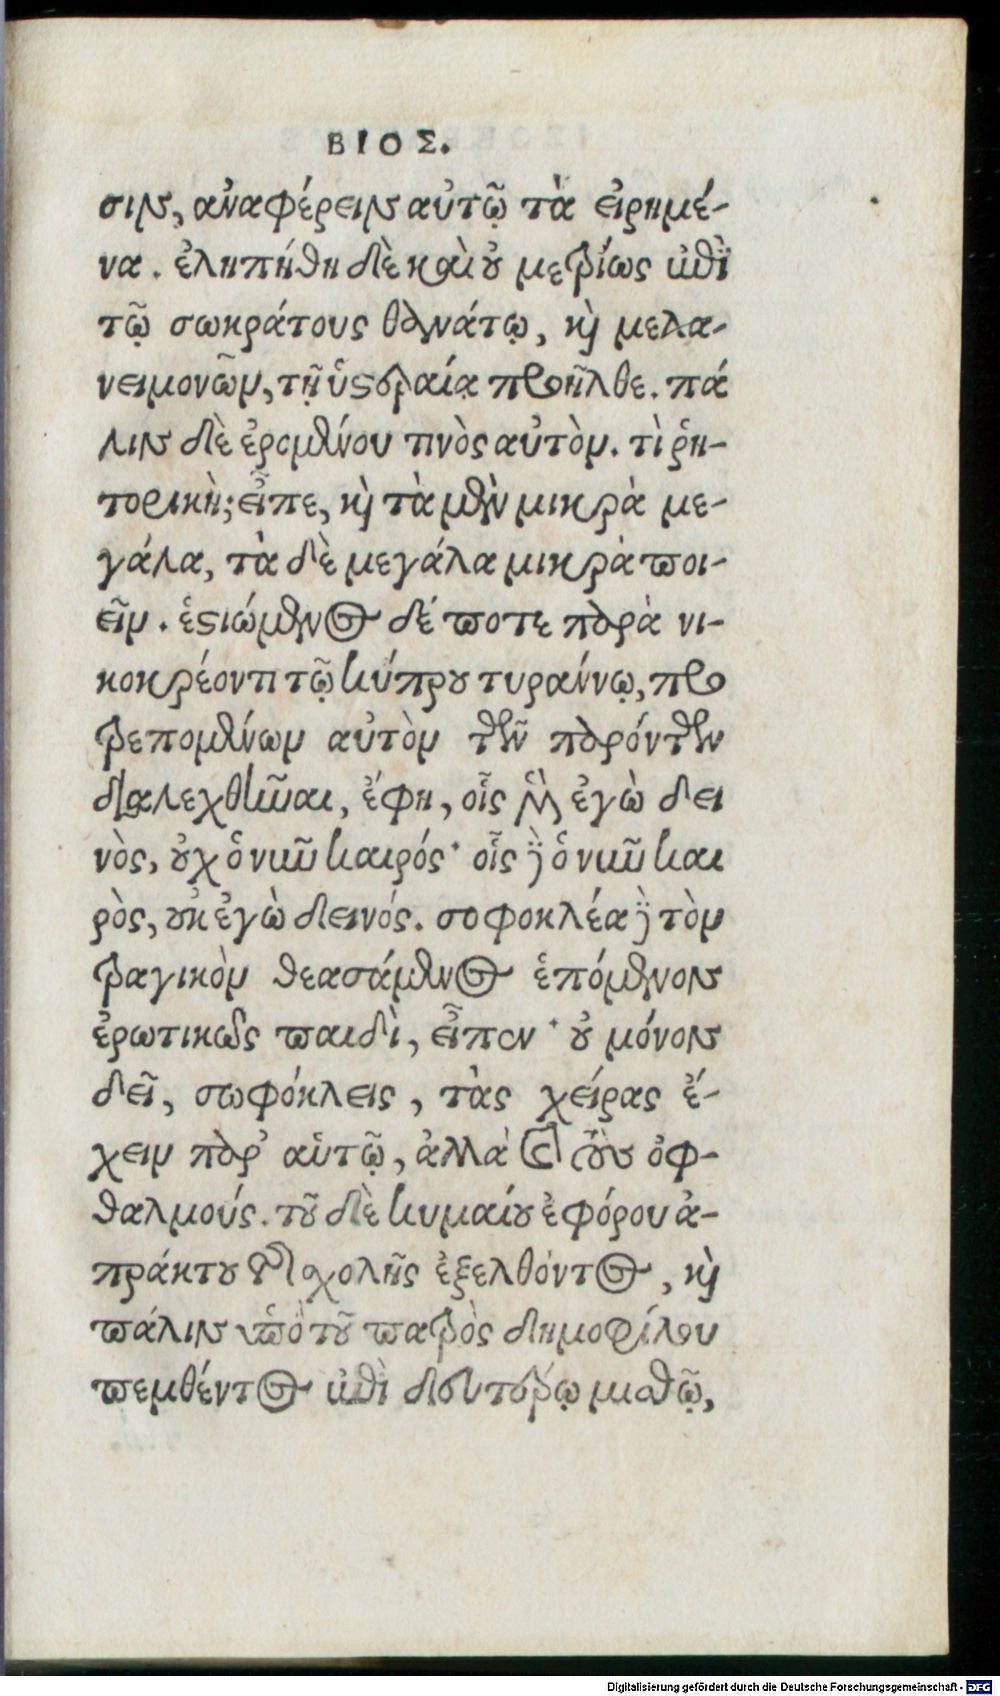 ΒΙΟΣ.
σιν, ἀναφέρειν αὐτῷ τὰ εἰρημέ-
να. ἐλυπήθη δὲ καὶ οὐ μετρίως ἐπὶ
τῷ σωκράτους θανάτῳ, καὶ μελα-
νειμονῶν, τῇ ὑστεραίᾳ προῆλθε. πά
λιν δὲ ἐρομένου τινὸς αὐτὸν. τὶ ῥη-
τορικὴ; εἶπε, καὶ τὰ μὲν μικρὰ με-
γάλα, τὰ δὲ μεγάλα μικρὰ ποι-
εῖν. ἑστιώμενος δέ ποτε παρὰ νι-
κοκρέοντι τῷ κύπρου τυράννῳ, προ
τρεπομένων αὐτὸν τῶν παρόντων
διαλεχθῆναι, ἔφη, οἷς μὲν ἐγὼ δει
νὸς, οὐχ ὁ νῦν καιρός· οἷς δὲ ὁ νῦν και
ρὸς, οὐκ ἐγὼ δεινός. σοφοκλέα δὲ τὸν
τραγικὸν θεασάμενος ἑπόμενον
ἐρωτικῶς παιδὶ, εἶπεν· οὐ μόνον
δεῖ, σωφόκλεις, τὰς χείρας ἔ-
χειν παρ' αὑτῷ, ἀλλὰ καὶ τοὺς ὀφ-
θαλμούς. τοῦ δὲ κυμαίου ἐφόρου ἀ-
πράκτου τῆς σχολῆς ἐξελθόντος, καὶ
πάλιν ὑπὸ τοῦ πατρὸς δημοφίλου
πεμθέντος ἐπὶ δευτέρῳ μισθῷ,
Digitalisierung gefördert durch die Deutsche Forschungsgemeinschaft - DFG